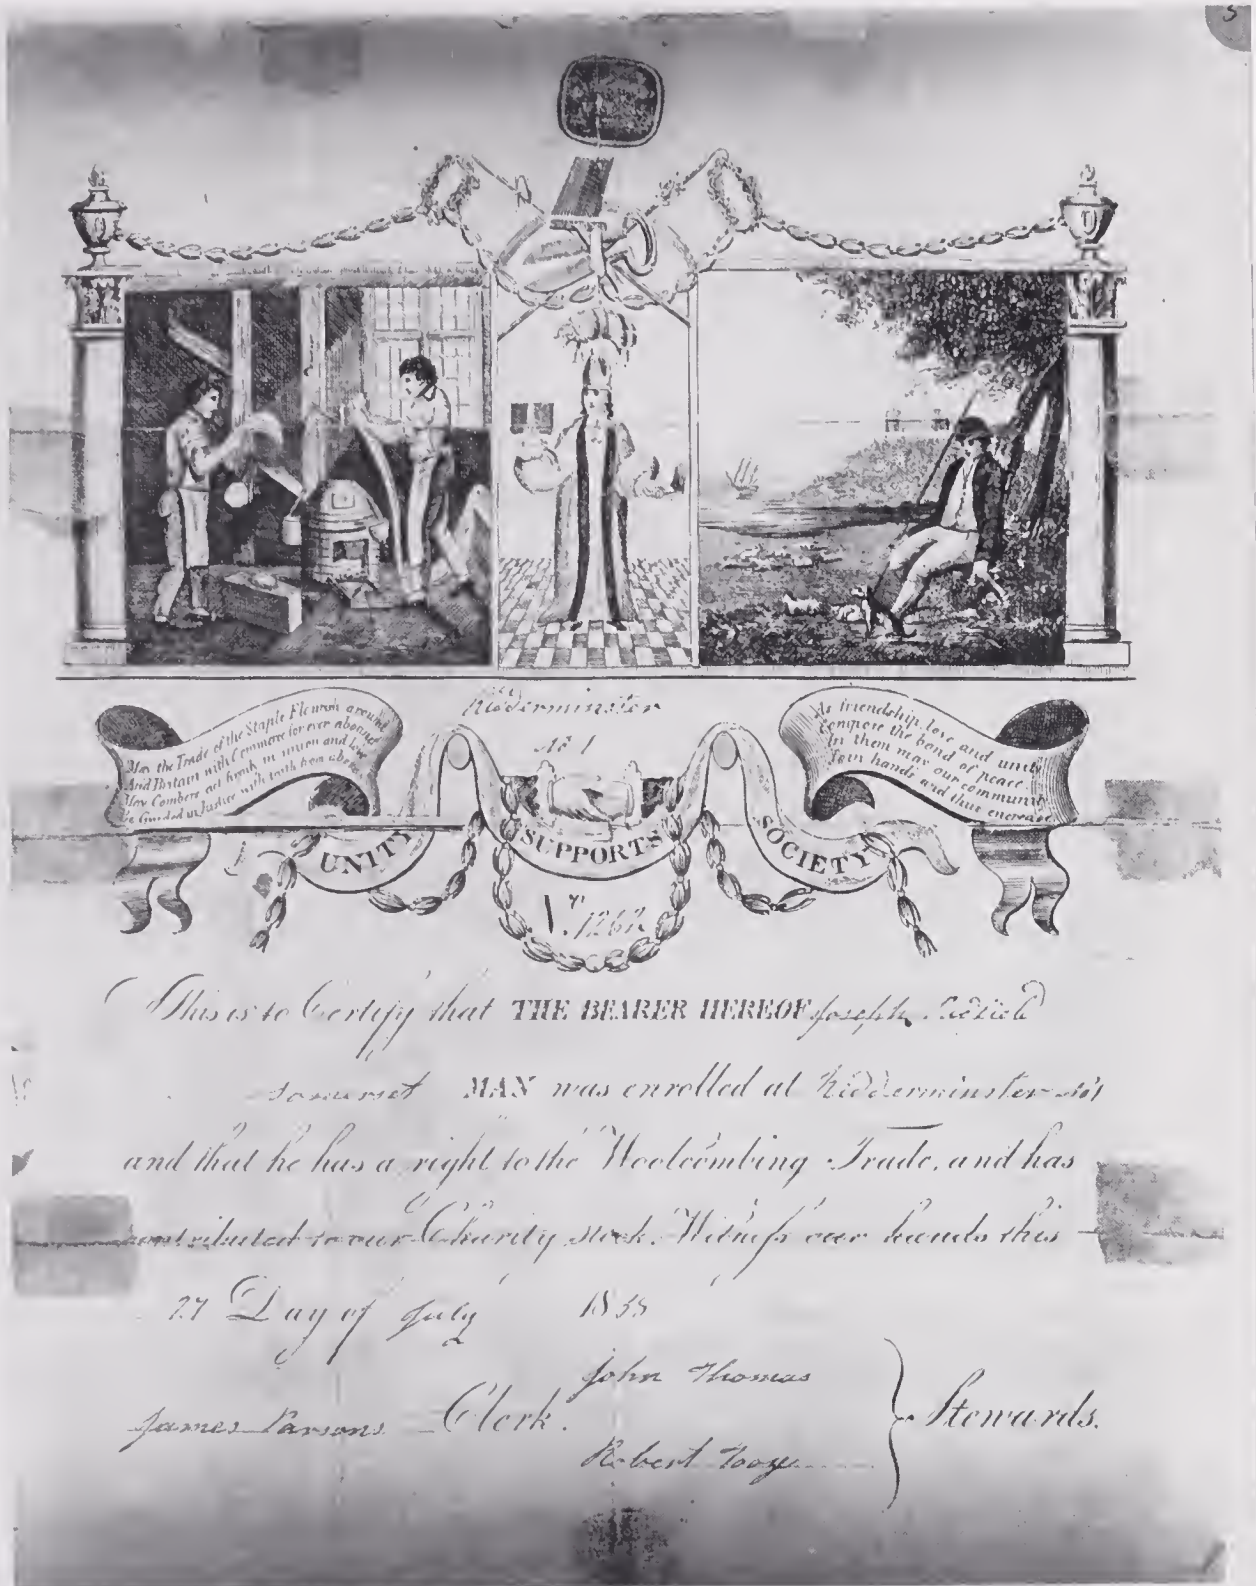 5
May the Trade of the Staple Flourish around
And Britain with Commerce for ever abound
May Combers act firmly in union and love
Be Guided in Justice with truth from above
Kidderminster
No 1
As friendship love and unity
Compose the bond of peace
In them may our community
Join hands and thus encrease
UNITY SUPPORTS SOCIETY
No. 1262
This is to Certify that THE BEARER HEREOF Joseph
Somerset MAN was enrolled at Kidderminster No 1
and that he has a right to the Woolcombing Trade, and has
contributed to our Charity stock. Witneſs our hands this
27 Day of July 1838
John Thomas
James Parsons Clerk. Stewards.
Robert Tooze